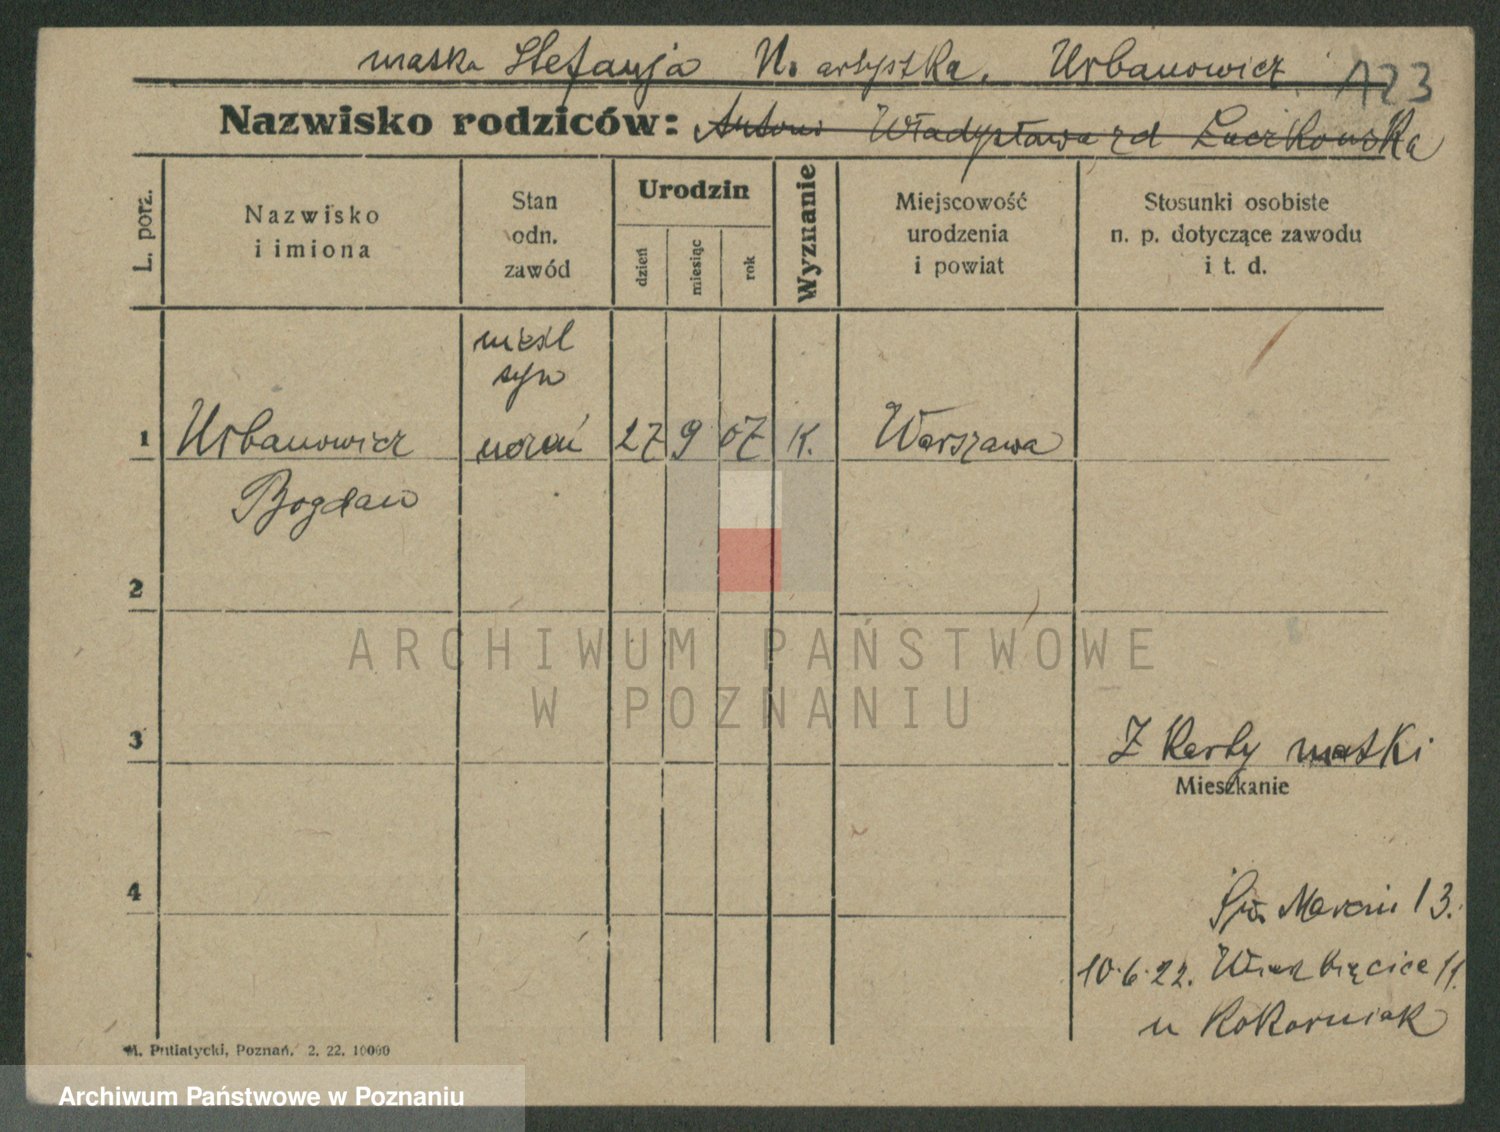 matka Stefanja N. artystka. Urbanowicz 123
Nazwisko rodziców: Antoni Władysława zd Łuczkowska
L. porz.
Nazwisko
i imiona
Stan
odn.
zawód
Urodzin
dzień
miesiąc
rok
Wyznanie
Miejscowość
urodzenia
i powiat
Stosunki osobiste
n. p. dotyczące zawodu
i t. d.
syn
1 Urbanowicz uczeń 27 9 07 K. Warszawa
Bogdan
2
ARCHIWUM PAŃSTWOWE
W POZNANIU
3 Z Karty matki
Mieszkanie
4
Św. Marcin 13.
10.6.22. Wierzbięcice 11.
u Kokorniak
M. Putiatycki, Poznań. 2. 22. 10000
Archiwum Państwowe w Poznaniu